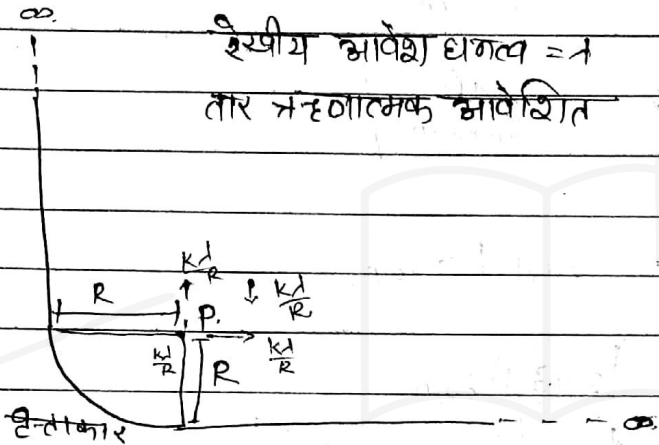 ∞
रेखीय आवेश घनत्व = λ
तार ऋणात्मक आवेशित
Kλ/R
R
Kλ/R
P.
Kλ/R
Kλ/R
R
वृत्ताकार
∞